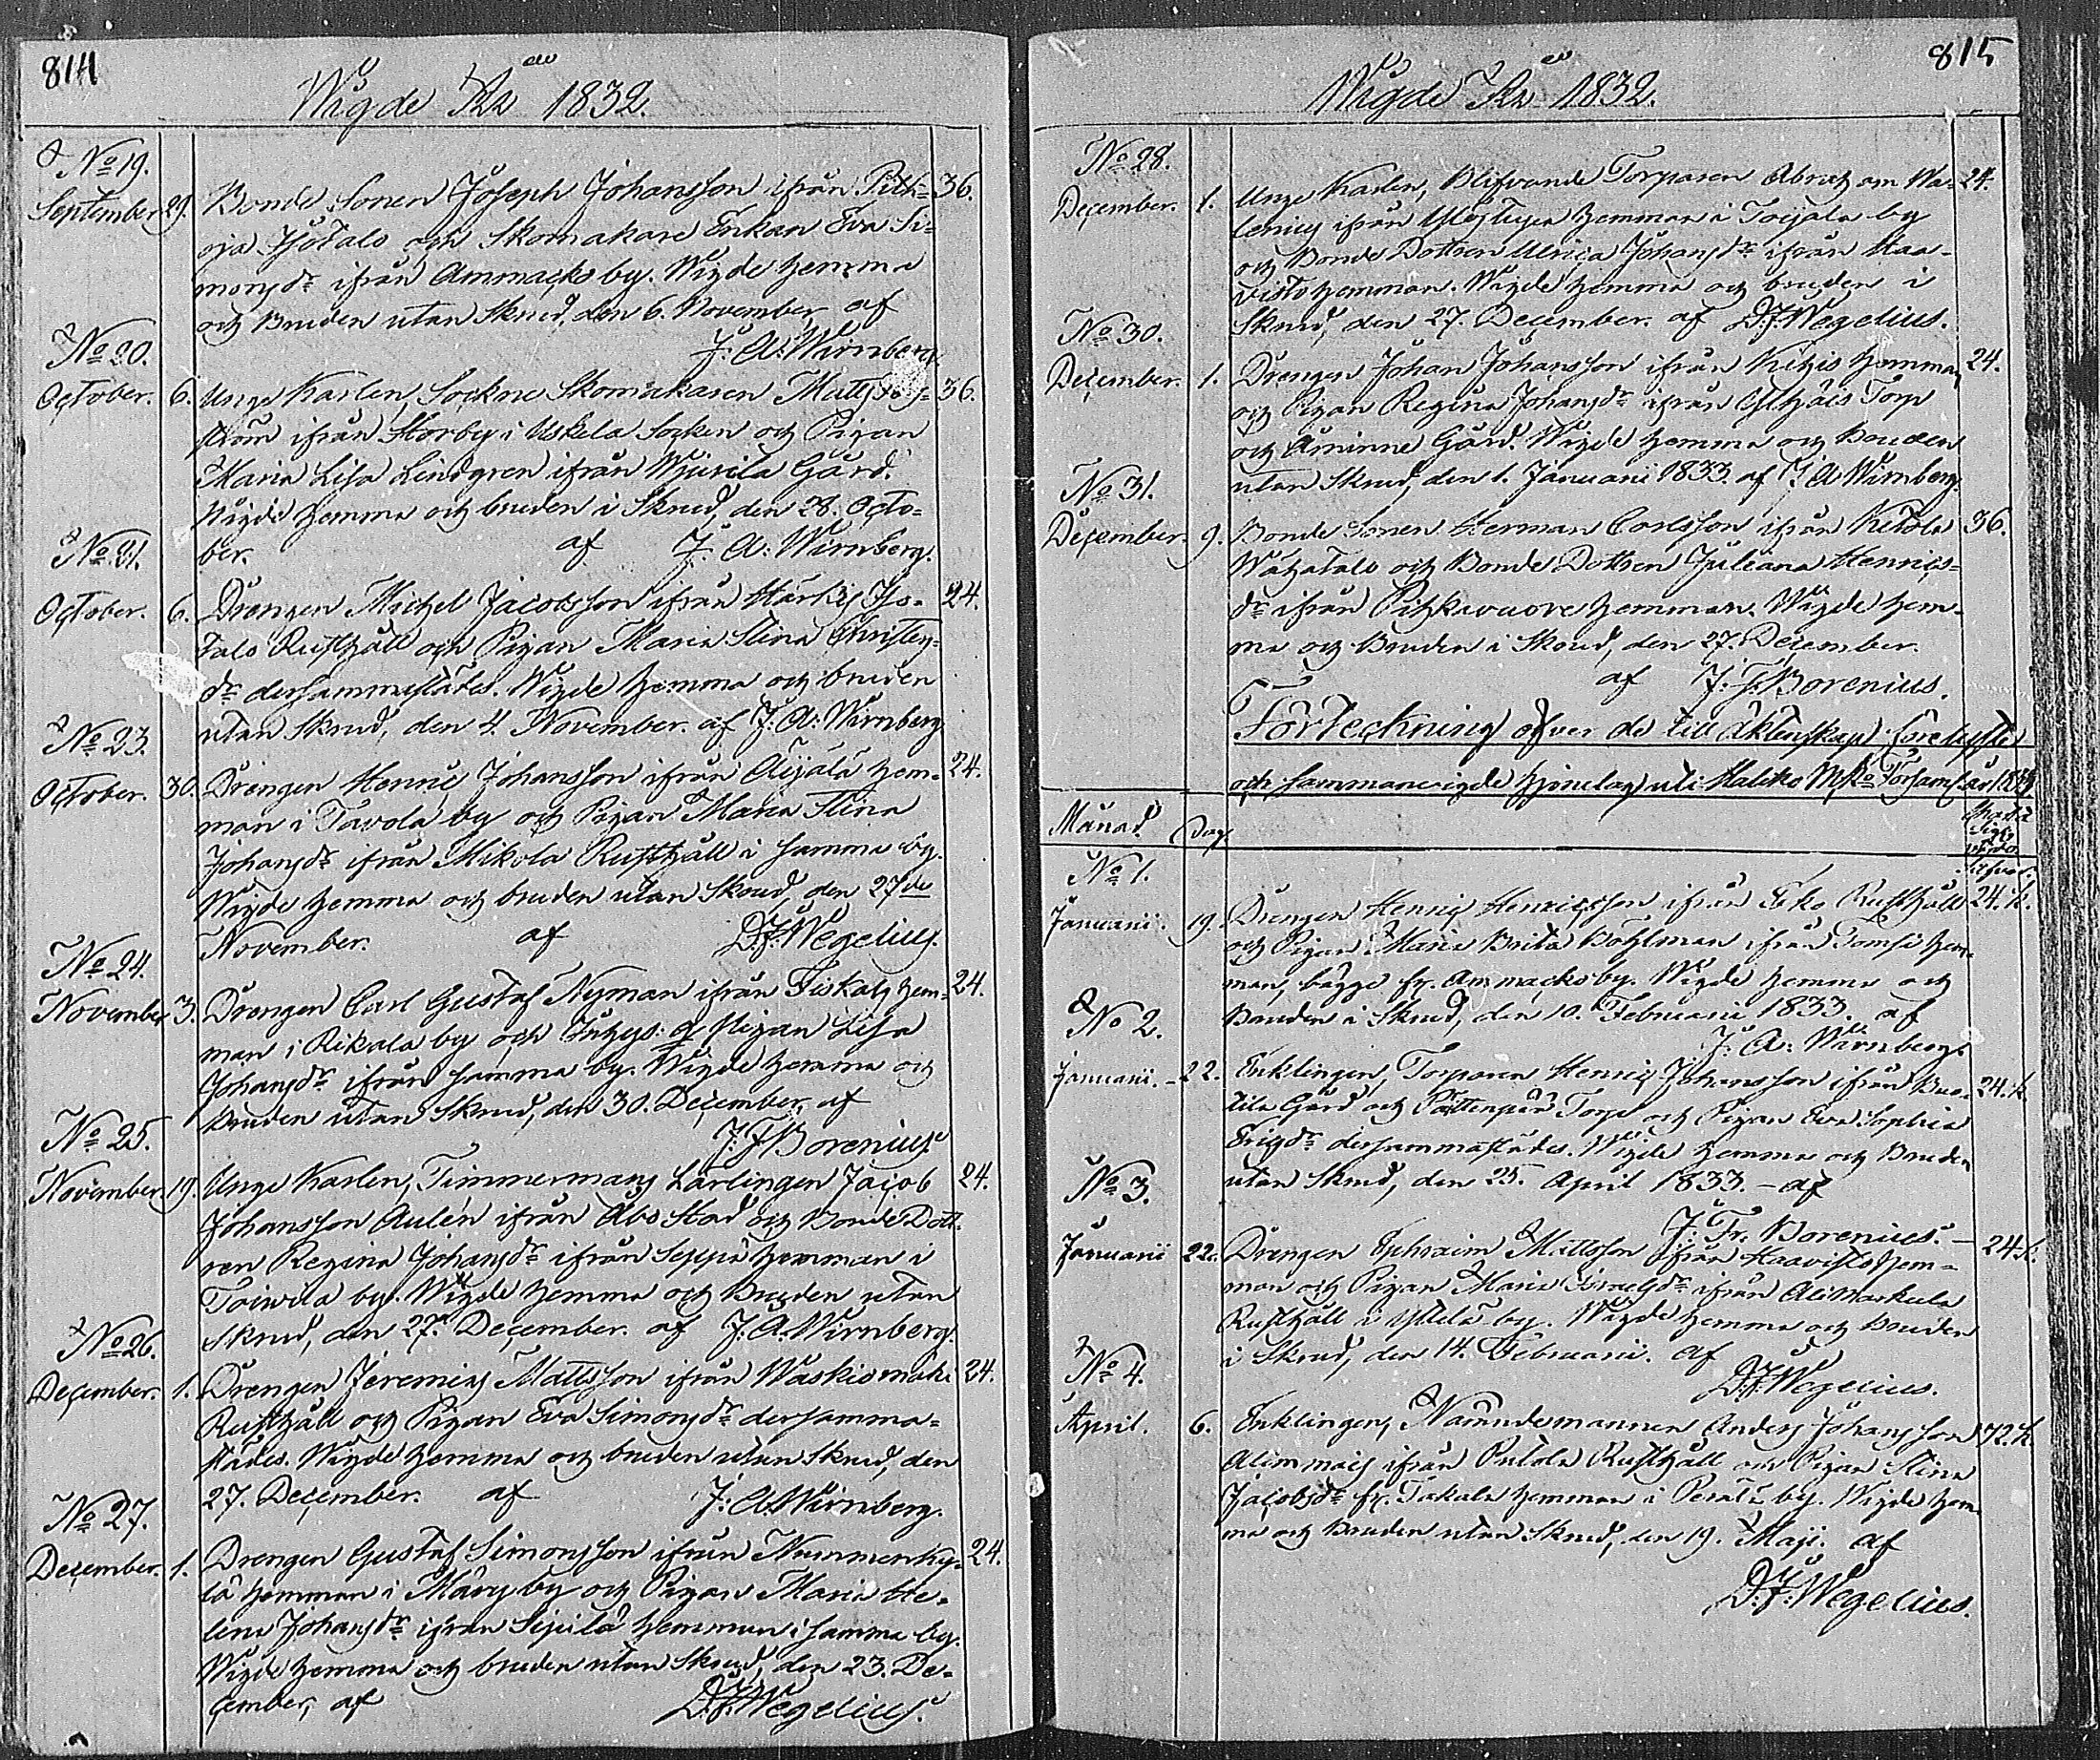 814
Wigde År 1832.
No 19.
September 29. Bonde Sonen Joseph Johansson ifrån Pitk= 36.
oja Isotalo och Skomakare Enkan Eva Si=
monsdr ifrån Ammacks by. Wigde hemma
och Bruden utan Skrud, den 6. November af
J. A: Wirnberg.
No 20.
October. 6. Unge Karlen, Sockne Skomakaren Matts 36.
ström ifrån Storby i Uskela Socken och Pigan
Maria Lisa Lindgren ifrån Wiurila Gård.
Wigde hemma och bruden i Skrud, den 28. Octo=
ber. af J. A: Wirnberg.
No 21.
October. 6. Drengen Michel Jacobsson ifrån Härkis Iso= 24.
talo Rusthåll och Pigan Maria Stina Christens=
dr dersammastädes. Wigde hemma och bruden
utan Skrud, den 4. November. af J: A: Wirnberg
No 23.
October. 30. Drengen Henric Johansson ifrån Alijälä hem= 24.
man i Tavola by och Pigan Maria Stina
Johansdr ifrån Mikola Rusthåll i samma by.
Wigde hemma och bruden utan Skrud, den 27de
November. af D. F. Wegelius.
No 24.
November 3. Drengen Carl Gustaf Nyman ifrån Fiskals hem= 24.
man i Rikala by och Inhys: q Pigan Lisa
Johansdr ifrån samma by. Wigde hemma och
Bruden utan Skrud, den 30. December, af
J: F Borenius.
No 25.
November. 19. Unge Karlen, Timmermans Lärlingen Jacob 24.
Johansson Aulén ifrån Åbo Stad och Bonde Dott=
ren Regina Johansdr ifrån Seppä hemman i
Toiwila by. Wigde hemma och Bruden utan
Skrud, den 27. December. af J: A. Wirnberg.
No 26.
December. 1. Drengen Jeremias Mattsson ifrån Waskiomäki 24.
Rusthåll och Pigan Eva Simonsdr dersamma=
städes. Wigde hemma och bruden utan Skrud, den
27. December. af J: A. Wirnberg.
No 27.
December. 1. Drengen Gustaf Simonsson ifrån Nummenky= 24.
lä hemman i Märy by och Pigan Maria He=
lena Johansdr ifrån Sipilä hemman i samma by.
Wigde hemma och bruden utan Skrud, den 23. De=
cember, af D. F. Wegelius.
815
Wigde År 1832.
No 28.
December. 1. Unge Karlen, Blifvande Torparen Abraham Wa= 24.
lenius ifrån hemman i Toijala by
och Bonde Dottren Ulrica Johansdr ifrån Haa=
visto hemman. Wigde hemma och bruden i
Skrud, den 27. December. af D. F. Wegelius.
No 30.
December. 1. Drengen Johan Johansson ifrån Kihis hemman 24.
och Pigan Regina Johansdr ifrån Torp
och Åminne Gård. Wigde hemma och Bruden
utan Skrud, den 1. Januarii 1833. af J A Wirnberg.
No 31.
December. 9. Bonde Sonen Herman Carlsson ifrån Ketola 36.
Wähätalo och Bonde Dottren Juliana Henrics=
dr ifrån Pitkävuore hemman. Wigde hem=
ma och Bruden i Skrud, den 27. December.
af J: F. Borenius.
Förteckning öfver de till Äktenskap förelyste
och sammanvigde Hjonelag uti Haliko Mko Församl. år 1833
Månad Dag.
No 1.
Januarii. 19. Drengen Henric Henricsson ifrån Eko Rusthåll 24. k.
och Pigan Maria Brita Bohlman ifrån Tomsi hem=
man, bägge fr. Ammacks by. Wigde hemma och
Bruden i Skrud, den 10. Februarii 1833. af
J. A: Wirnberg.
No 2.
Januarii. 22. Enklingen, Torparen Henric Johansson ifrån 24. k.
Gård och Torp och Pigan Eva Sophia
Ericsdr dersammastädes. Wigde hemma och Bruden
utan Skrud, den 25. April 1833. - af
J: Fr. Borenius.
No 3.
Januarii 22. Drengen Ephraim Mattsson ifrån Haavisto hem= 24. k.
man och Pigan Maria Israelsdr ifrån Alimarkula
Rusthåll i by. Wigde hemma och Bruden
i Skrud, den 14. Februarii. af
D. F. Wegelius.
No 4.
April. 6. Enklingen, Nämndemannen Anders Johansson 72. k.
Alimmais ifrån Putola Rusthåll och Pigan Stina
Jacobsdr fr. Takala hemman i by. Wigde hem=
ma och Bruden utan Skrud, den 19. Maji. af
D. F. Wegelius.